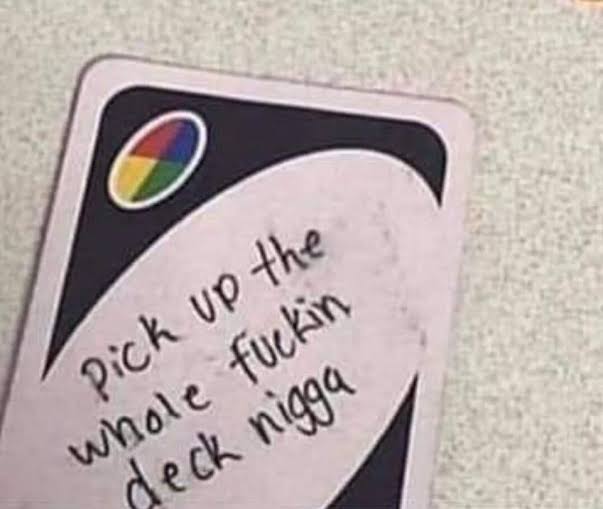 Pick up the
whole fuckin
deck nigga